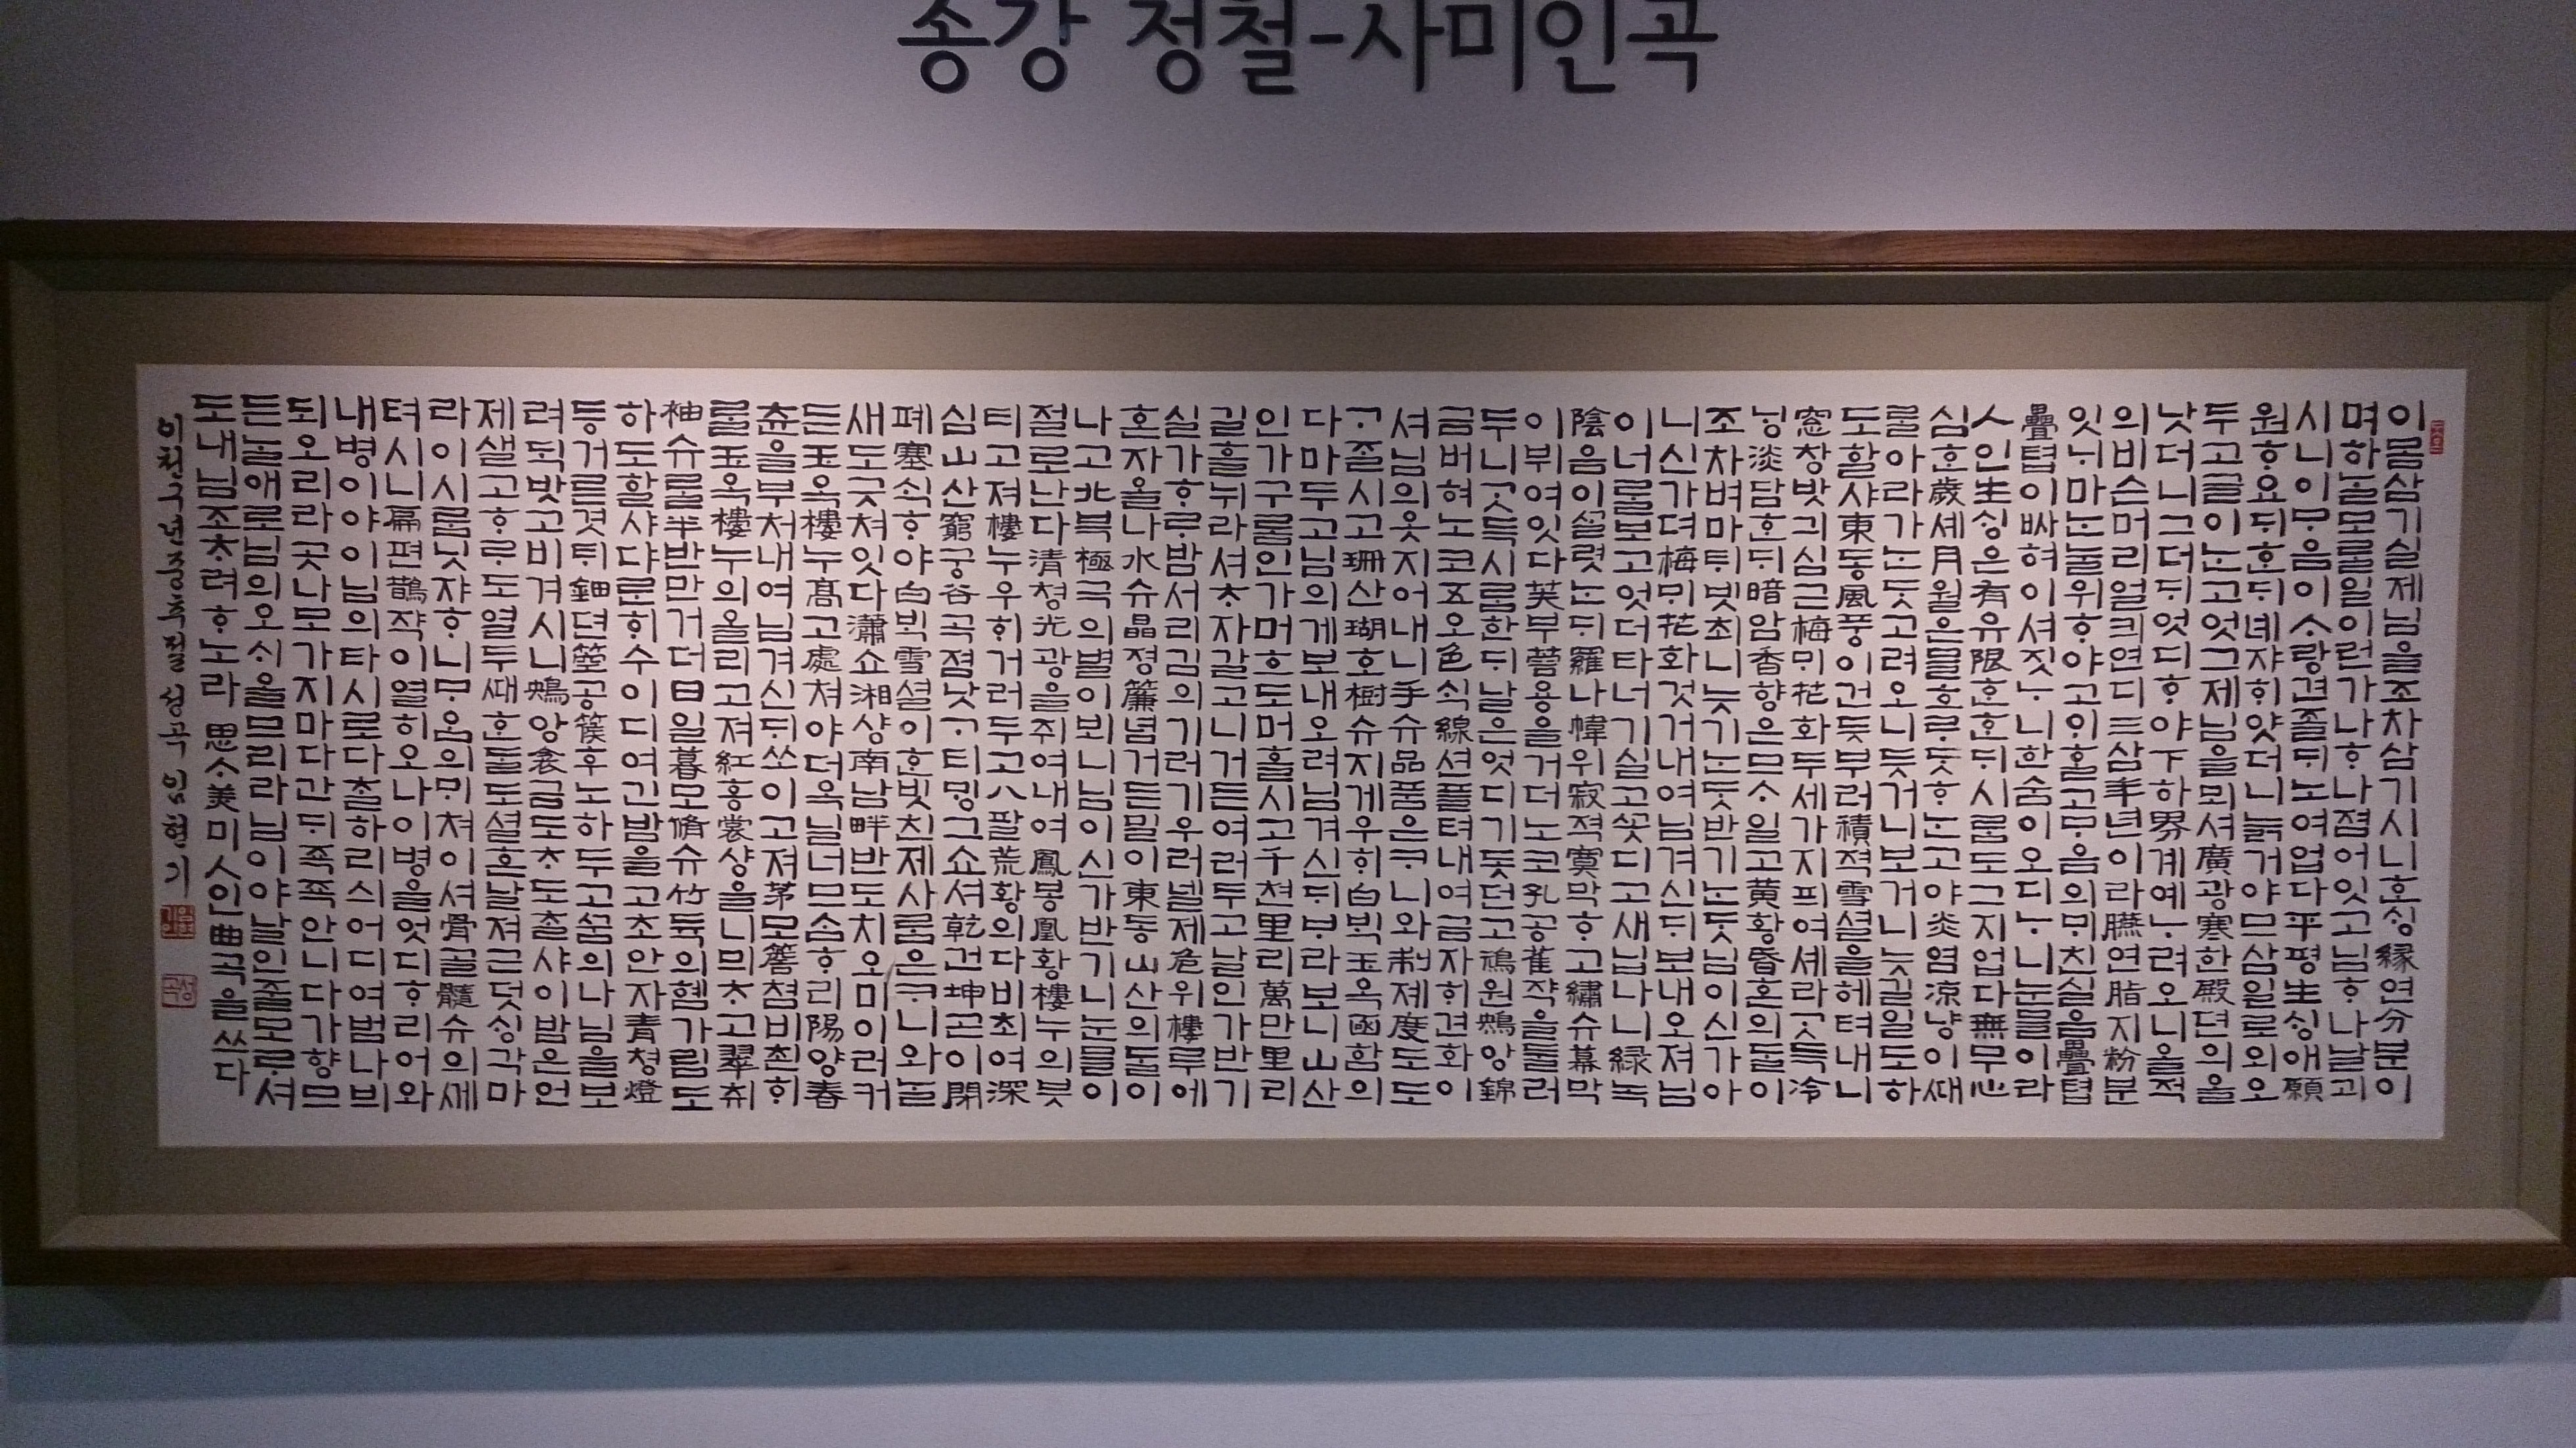 송강 정철-사미인곡
이몸삼기실제님을조차삼기시니ᄒᆞᆫᄉᆡᆼ緣연分분이
며하ᄂᆞᆯ모ᄅᆞᆯ일이런가나ᄒᆞ나졈어잇고님ᄒᆞ나날괴
시니이ᄆᆞᄋᆞᆷ이ᄉᆞ랑견졸ᄃᆡ노여업다平평生ᄉᆡᆼ애願
원ᄒᆞ요ᄃᆡᄒᆞᆫᄃᆡ녜쟈ᄒᆞ얏더니늙거야므삼일로외오
두고글이ᄂᆞᆫ고엇그제님을뫼셔廣광寒한殿뎐의올
낫더니그더ᄃᆡ엇디ᄒᆞ야下하界계예ᄂᆞ려오니올적
의비슨머리얼킈연디三삼年년이라臙연脂지粉분
잇ᄂᆡ마ᄂᆞᆫ눌위ᄒᆞ야고이ᄒᆞᆯ고ᄆᆞᄋᆞᆷ의ᄆᆡ친실음疊텹
疊텹이ᄡᅡ혀이셔짓ᄂᆞ니한숨이오디ᄂᆞ니눈믈이라
人인生ᄉᆡᆼ은有유限ᄒᆞᆫᄒᆞᆫᄃᆡ시ᄅᆞᆷ도그지업다無무心
심ᄒᆞᆫ歲셰月월은믈흐ᄅᆞᄃᆞᆺᄒᆞᄂᆞᆫ고야炎염凉냥이ᄯᅢ
ᄅᆞᆯ아라가ᄂᆞᆫᄃᆞᆺ고려오니듯거니보거니늣길일도하
도할샤東동風풍이건듯부러積적雪셜을헤텨내니
窓창밧긔심근梅ᄆᆡ花화두세가지픠여셰라ᄀᆞᆺ득冷
ᄂᆡᆼ淡담ᄒᆞᆫᄃᆡ暗암香향은므ᄉᆞ일고黃황昏혼의ᄃᆞᆯ이
조차벼마ᄐᆡ빗최니늣기ᄂᆞᆫᄃᆞᆺ반기ᄂᆞᆫᄃᆞᆺ님이신가아
니신가뎌梅ᄆᆡ花화것거내여님겨신ᄃᆡ보내오져님
이너ᄅᆞᆯ보고엇더타너기실고ᄭᅩᆺ디고새닙나니綠녹
陰음이ᄭᆞᆯ렷ᄂᆞᆫᄃᆡ羅나幃위寂적寞막ᄒᆞ고繡슈幕막
이뷔여잇다芙부蓉용을거더노코孔공雀쟉을둘러
두니ᄀᆞᆺ득시ᄅᆞᆷ한ᄃᆡ날은엇디기돗던고鴛원鴦앙錦
금버혀노코五오色ᄉᆡᆨ線션플텨내여금자ᄒᆡ견화이
셔님의옷지어내니手슈品품은ᄏᆞ니와制졔度도도
ᄀᆞ즐시고珊산瑚호樹슈지게우ᄒᆡ白ᄇᆡᆨ玉옥函함의
다마두고님의게보내오려님겨신ᄃᆡᄇᆞ라보니山산
인가구롬인가머흐도머흘시고千쳔里리萬만里리
길흘뉘라셔ᄎᆞ자갈고니거든여러두고날인가반기
실가ᄒᆞᄅᆞ밤서리김의기러기우러녤제危위樓루에
혼자올나水슈晶졍簾념거든말이東동山산의ᄃᆞᆯ이
나고北븍極극의별이뵈니님이신가반기니눈믈이
절로난다淸쳥光광을쥐여내여鳳봉凰황樓누의븟
티고져樓누우ᄒᆡ거러두고八팔荒황의다비최여深
심山산窮궁谷곡졈낫ᄀᆞ티ᄆᆡᆼ그쇼셔乾건坤곤이閉
폐塞ᄉᆡᆨᄒᆞ야白ᄇᆡᆨ雪셜이ᄒᆞᆫ빗친제사ᄅᆞᆷ은ᄏᆞ니와ᄂᆞᆯ
새도긋쳐잇다瀟쇼湘상南남畔반도치오미이러커
든玉옥樓누高고處쳐야더옥닐너므슴ᄒᆞ리陽양春
츈을부처내여님겨신ᄃᆡ쏘이고져茅모簷쳠비쵠ᄒᆡ
ᄅᆞᆯ玉옥樓누의올리고져紅홍裳상을니믜ᄎᆞ고翠취
袖슈ᄅᆞᆯ半반만거더日일暮모脩슈竹듁의혬가림도
하도할샤댜ᄅᆞᆫᄒᆡ수이디여긴밤을고초안자靑쳥燈
등거른겻ᄐᆡ鈿뎐箜공篌후노하두고ᄭᅮᆷ의나님을보
려ᄐᆡᆨ밧고비겨시니鴦앙衾금도ᄎᆞ도ᄎᆞᆯ샤이밤은언
제샐고ᄒᆞᄅᆞ도열두ᄯᅢᄒᆞᆫᄃᆞᆯ도셜흔날져근덧ᄉᆡᆼ각마
라이시ᄅᆞᆷ닛쟈ᄒᆞ니ᄆᆞᄋᆞᆷ의ᄆᆡ쳐이셔骨골髓슈의ᄢᅦ
텨시니扁편鵲쟉이열히오나이병을엇디ᄒᆞ리어와
내병이야이님의타시로다ᄎᆞᆯ하리싀어디여범나븨
되오리라곳나모가지마다간ᄃᆡ죡죡안니다가향므
든ᄂᆞᆯ애로님의오ᄉᆡ올므리라님이야날인줄모ᄅᆞ셔
도내님조ᄎᆞ려ᄒᆞ노라 思ᄉᆞ美미人인曲곡을쓰다
이천구년중추절 성곡 임현기